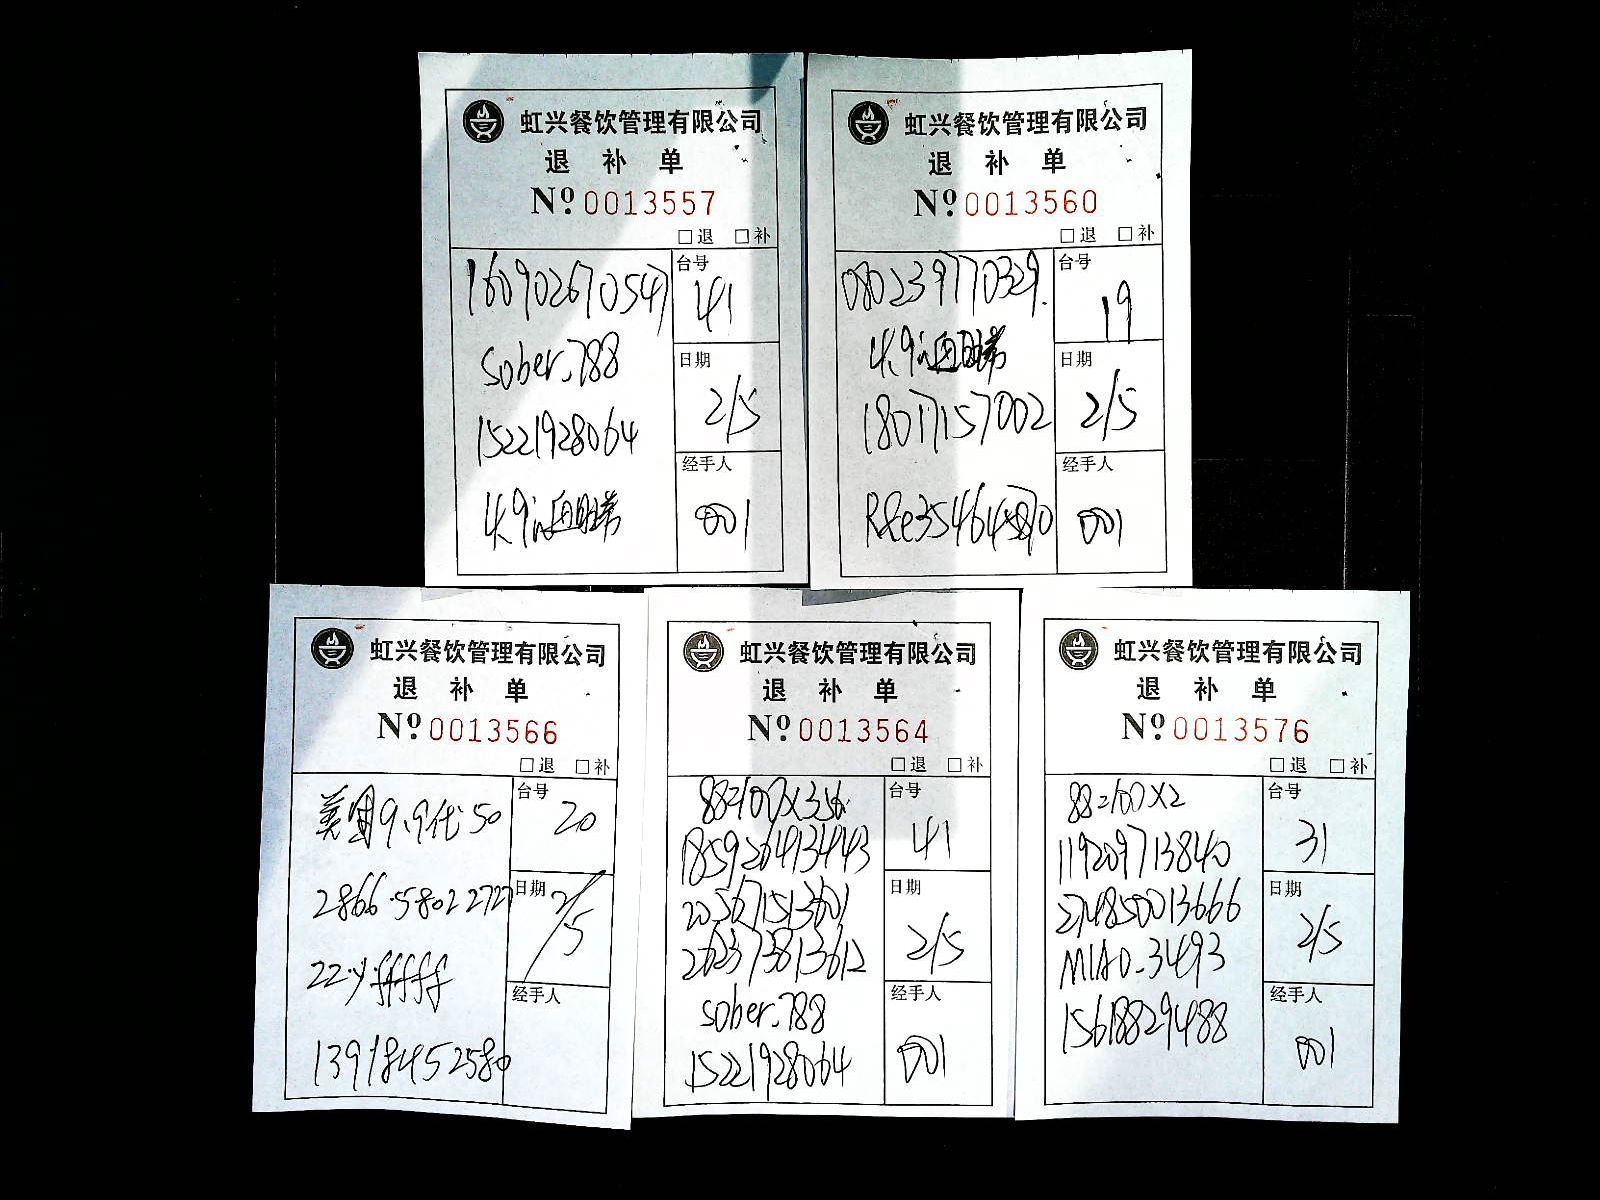 虹兴餐饮管理有限公司
退 补 单
Nº 0013557
□退 □补
160902670547
sober.788
15221928064
台号
41
日期
2/5
经手人
001
虹兴餐饮管理有限公司
退 补 单
Nº 0013560
□退 □补
080239770329.
18017157002
台号
19
日期
2/5
经手人
001
虹兴餐饮管理有限公司
退 补 单
Nº 0013566
□退 □补
美团9.9代50
2866 58022727
13918452580
台号
20
日期
2/5
经手人
虹兴餐饮管理有限公司
退 补 单
Nº 0013564
□退 □补
1859264134143
205671513601
262373813612
sober.788
15221928064
台号
41
日期
2/5
经手人
001
虹兴餐饮管理有限公司
退 补 单
Nº 0013576
□退 □补
88=100X2
119209713840
274850013666
MIAO-3493
15618829488
台号
31
日期
2/5
经手人
001